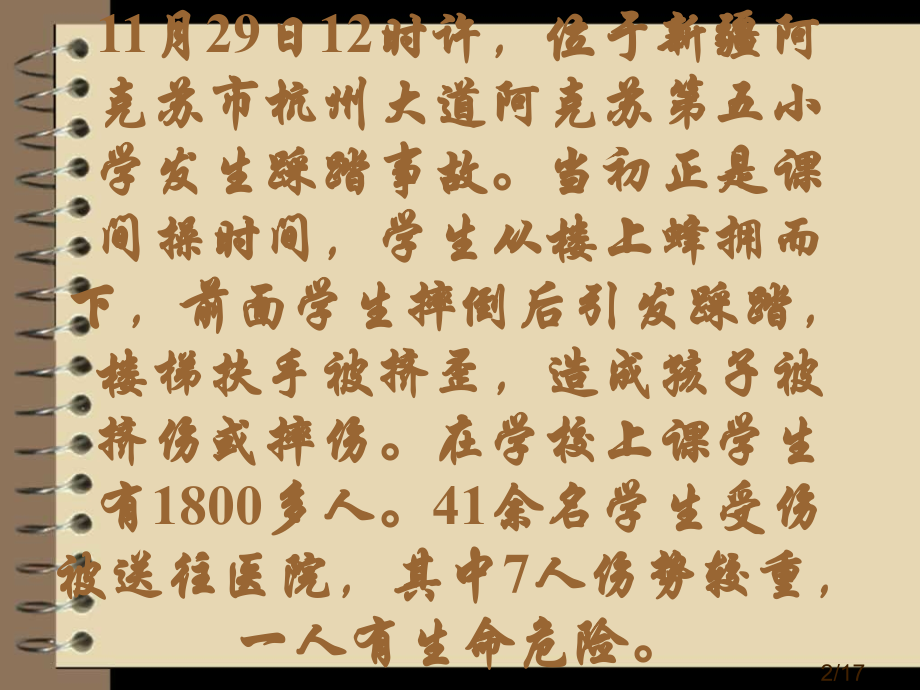 11月29日12时许，位于新疆阿
克苏市杭州大道阿克苏第五小
学发生踩踏事故。当初正是课
间操时间，学生从楼上蜂拥而
下，前面学生摔倒后引发踩踏，
楼梯扶手被挤歪，造成孩子被
挤伤或摔伤。在学校上课学生
有1800多人。41余名学生受伤
被送往医院，其中7人伤势较重，
一人有生命危险。
2/17